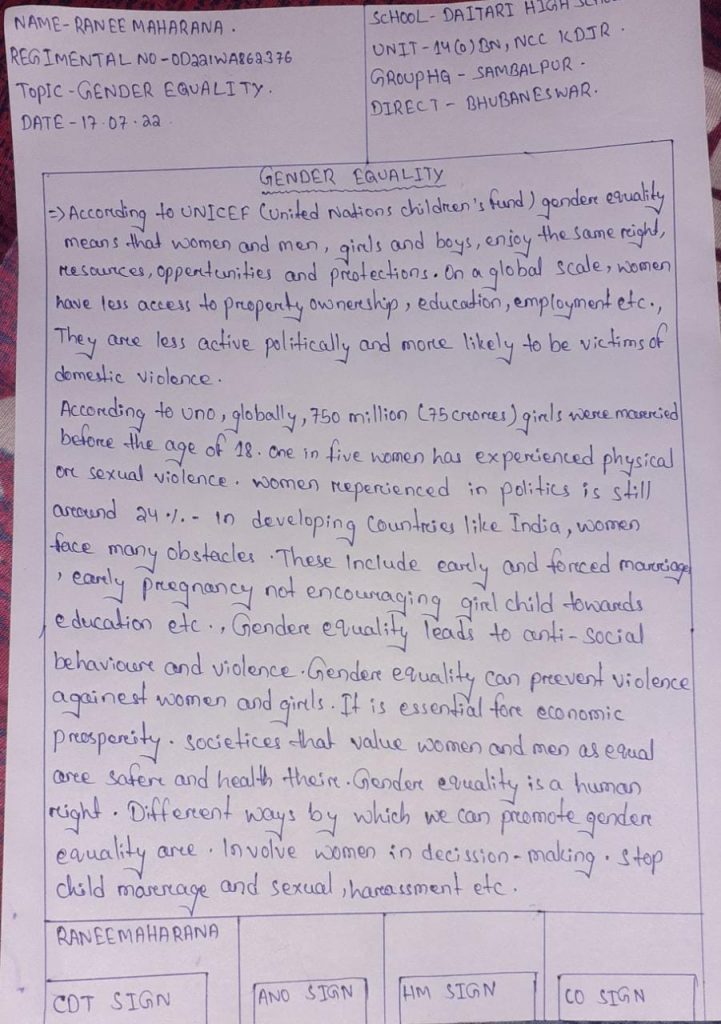 NAME-RANEE MAHARANA.
REGIMENTAL NO-OD22IWA862376
TOPIC-GENDER EQUALITY.
DATE-17.07.22
SCHOOL- DAITARI HIGH
UNIT-14(O)BN, NCC KDJR.
GROUPHQ - SAMBALPUR.
DIRECT- BHUBANESWAR.
GENDER EQUALITY
=> According to UNICEF (United Nations children's fund) gendere equality
means that women and men, girls and boys, enjoy the same reight,
resources, oppertunities and protections. On a global scale, women
have less access to property ownership, education, employment etc.,
They are less active politically and more likely to be victims of
domestic violence.
According to uno, globally, 750 million (75 crores) girls were mareried
before the age of 18. one in five women has experienced physical
ore sexual violence. women reperienced in politics is still
around 24 %. - in developing countries like India, women
face many obstacles. These include early and forced marriage
, early preegnancy not encouraging girl child towards
education etc., Gendere equality leads to anti-social
behavioure and violence. Gendere equality can preevent violence
againest women and girls. It is essential fore economic
prosperity. societices that value women and men as equal
aree safere and health theire. Gendere equality is a human
reight. Different ways by which we can promote gendere
equality are. Involve women in decission-making. stop
child marereage and sexual, harassment etc.
RANEEMAHARANA
CDT SIGN
ANO SIGN
HM SIGN
CO SIGN